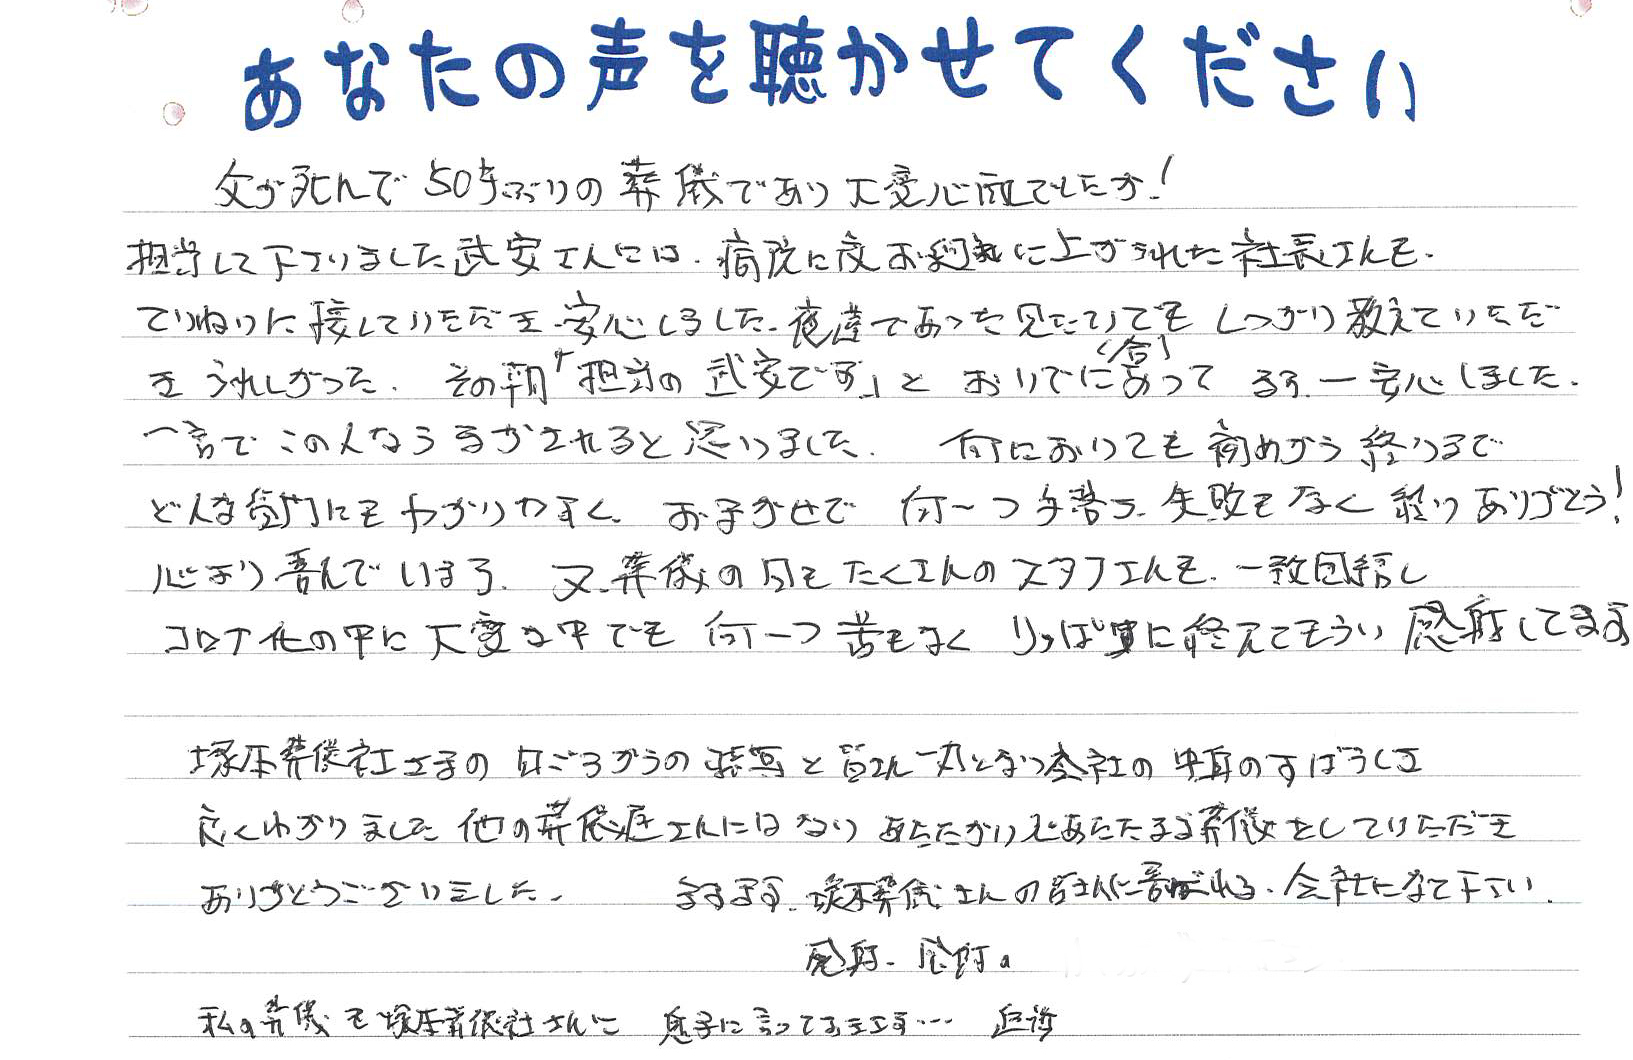 あなたの声を聴かせてください
父が死んで50年ぶりの葬儀であり大変心配でしたが！
担当して下さいました武安さんには、病院に夜お迎えに上がられた社長さんも、
ていねいに接していただき、安心しました。夜遅であった見たいでも しっかり教えていただ
き うれしかった。 その朝「担当の 武安です」と おいでにあって まず 一安心しました。
(会)
一言で この人なら まかされると思いました。 何においても 初めから 終りまで
どんな質問にも わかりやすく、 おまかせで 何一つ 手落ち、失敗もなく 終り ありがとう！
心より 喜んでいます。 又、葬儀の日も たくさんの スタフさんも、一致団結し
コロナ化の中に 大変な中でも 何一つ 苦もなく りっぱ に終えてもらい 感謝してます
塚本葬儀社さまの 日ごろからの と皆さん 一丸となつ会社の 中身のすばらしさ
良くわかりました 他の葬儀屋さんにはない あたたかい 心あたたまる葬儀をしていただき
ありがとうございました。 ますます、塚本葬儀さんの皆さんに喜ばれる、会社になって下さい。
感謝、感謝。
私の葬儀も塚本葬儀社さんに 息子に言っておきます… 追詩